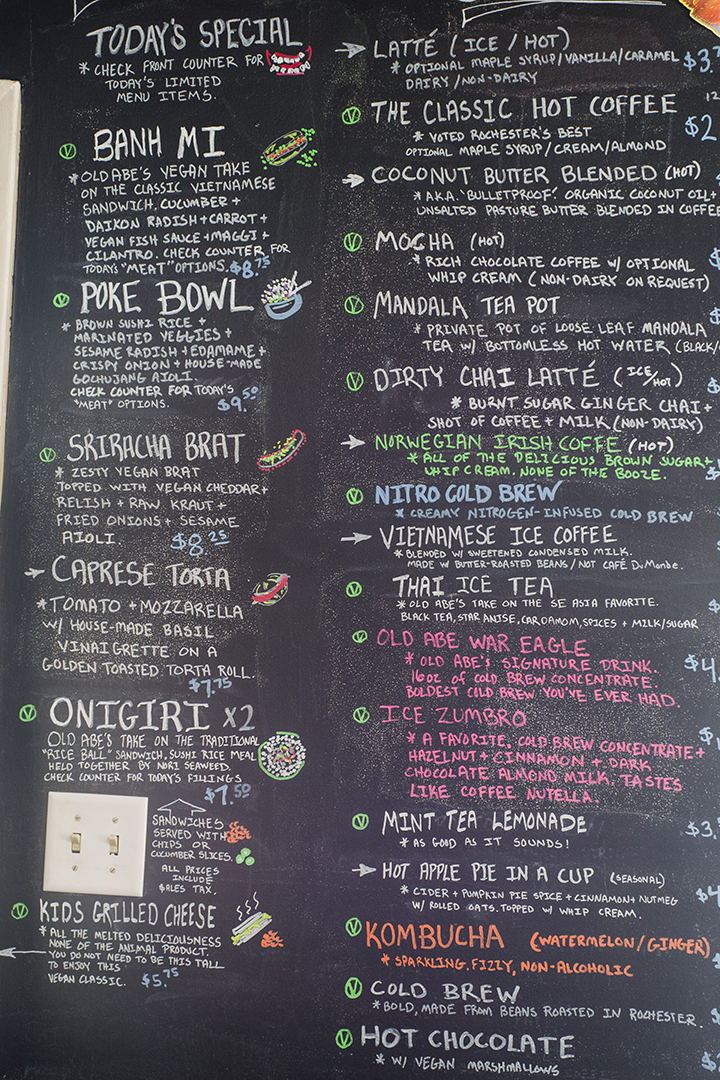 TODAY'S SPECIAL
* CHECK FRONT COUNTER FOR
TODAY'S LIMITED
MENU ITEMS.
Ⓥ BANH MI
* OLD ABE'S VEGAN TAKE
ON THE CLASSIC VIETNAMESE
SANDWICH. CUCUMBER +
DAIKON RADISH + CARROT +
VEGAN FISH SAUCE + MAGGI +
CILANTRO. CHECK COUNTER FOR
TODAY'S "MEAT" OPTIONS. $8.75
Ⓥ POKE BOWL
* BROWN SUSHI RICE +
MARINATED VEGGIES +
SESAME RADISH + EDAMAME +
CRISPY ONION + HOUSE-MADE
GOCHUJANG AIOLI.
CHECK COUNTER FOR TODAY'S
"MEAT" OPTIONS. $9.50
Ⓥ SRIRACHA BRAT
* ZESTY VEGAN BRAT
TOPPED WITH VEGAN CHEDDAR +
RELISH + RAW KRAUT +
FRIED ONIONS + SESAME
AIOLI. $8.25
→ CAPRESE TORTA
* TOMATO + MOZZARELLA
W/ HOUSE-MADE BASIL
VINAIGRETTE ON A
GOLDEN TOASTED TORTA ROLL.
$7.75
Ⓥ ONIGIRI X2
OLD ABE'S TAKE ON THE TRADITIONAL
"RICE BALL" SANDWICH, SUSHI RICE MEAL
HELD TOGETHER BY NORI SEAWEED.
CHECK COUNTER FOR TODAY'S FILLINGS
$7.50
SANDWICHES
SERVED WITH
CHIPS OR
CUCUMBER SLICES.
ALL PRICES
INCLUDE
SALES TAX.
Ⓥ KIDS GRILLED CHEESE
* ALL THE MELTED DELICIOUSNESS
NONE OF THE ANIMAL PRODUCT.
← YOU DO NOT NEED TO BE THIS TALL
TO ENJOY THIS
VEGAN CLASSIC. $5.75
→ LATTÉ (ICE / HOT)
* OPTIONAL MAPLE SYRUP/VANILLA/CARAMEL $3.
DAIRY/NON-DAIRY
Ⓥ THE CLASSIC HOT COFFEE 12
* VOTED ROCHESTER'S BEST $2
OPTIONAL MAPLE SYRUP/CREAM/ALMOND
→ COCONUT BUTTER BLENDED (HOT)
* A.K.A. 'BULLETPROOF'. ORGANIC COCONUT OIL +
UNSALTED PASTURE BUTTER BLENDED IN COFFEE
Ⓥ MOCHA (HOT)
* RICH CHOCOLATE COFFEE W/ OPTIONAL
WHIP CREAM (NON-DAIRY ON REQUEST)
Ⓥ MANDALA TEA POT
* PRIVATE POT OF LOOSE LEAF MANDALA
TEA W/ BOTTOMLESS HOT WATER (BLACK/
Ⓥ DIRTY CHAI LATTÉ (ICE/HOT)
* BURNT SUGAR GINGER CHAI +
SHOT OF COFFEE + MILK (NON-DAIRY)
→ NORWEGIAN IRISH COFFE (HOT)
* ALL OF THE DELICIOUS BROWN SUGAR +
WHIP CREAM. NONE OF THE BOOZE.
Ⓥ NITRO COLD BREW
* CREAMY NITROGEN-INFUSED COLD BREW
→ VIETNAMESE ICE COFFEE
* BLENDED W/ SWEETENED CONDENSED MILK.
MADE W/ BUTTER-ROASTED BEANS / NOT CAFÉ DuMonde.
Ⓥ THAI ICE TEA
* OLD ABE'S TAKE ON THE SE ASIA FAVORITE.
BLACK TEA, STAR ANISE, CARDAMOM, SPICES + MILK/SUGAR
Ⓥ OLD ABE WAR EAGLE
* OLD ABE'S SIGNATURE DRINK. $4.
16 OZ OF COLD BREW CONCENTRATE.
BOLDEST COLD BREW YOU'VE EVER HAD.
Ⓥ ICE ZUMBRO
* A FAVORITE. COLD BREW CONCENTRATE +
HAZELNUT + CINNAMON + DARK
CHOCOLATE ALMOND MILK. TASTES
LIKE COFFEE NUTELLA.
Ⓥ MINT TEA LEMONADE $3.
* AS GOOD AS IT SOUNDS!
→ HOT APPLE PIE IN A CUP (SEASONAL)
* CIDER + PUMPKIN PIE SPICE + CINNAMON + NUTMEG $4
W/ ROLLED OATS. TOPPED W/ WHIP CREAM.
Ⓥ KOMBUCHA (WATERMELON/GINGER)
* SPARKLING, FIZZY, NON-ALCOHOLIC
Ⓥ COLD BREW
* BOLD, MADE FROM BEANS ROASTED IN ROCHESTER.
Ⓥ HOT CHOCOLATE
* W/ VEGAN MARSHMALLOWS